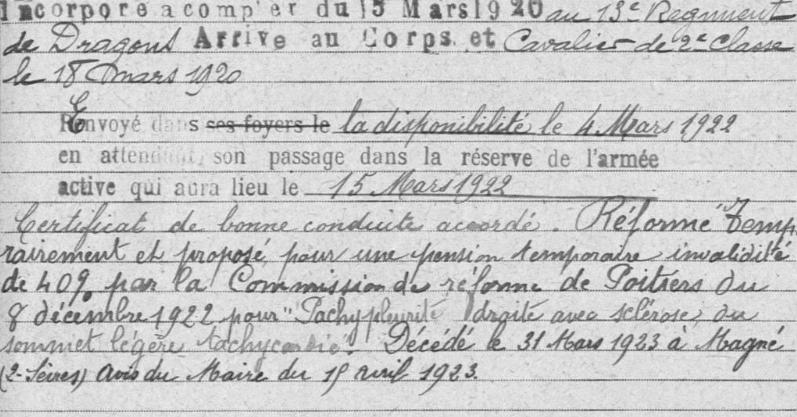 Incorporé à compter du 15 Mars 1920 au 13e Régiment
de Dragons Arrivé au Corps et Cavalier de 2e Classe
le 18 mars 1920
Envoyé dans ses foyers le la disponibilité le 4 Mars 1922
en attendant son passage dans la réserve de l'armée
active qui aura lieu le 15 Mars 1922
Certificat de bonne conduite accordé. Réformé Temp
rairement et proposé pour une pension temporaire invalidité
de 40% par la Commission de réforme de Poitiers du
8 décembre 1922 pour "Pachypleurite droite avec sclérose du
sommet légère tachycardie". Décédé le 31 Mars 1923 à Magné
(2-Sèvres) Avis du Maire du 15 avril 1923.